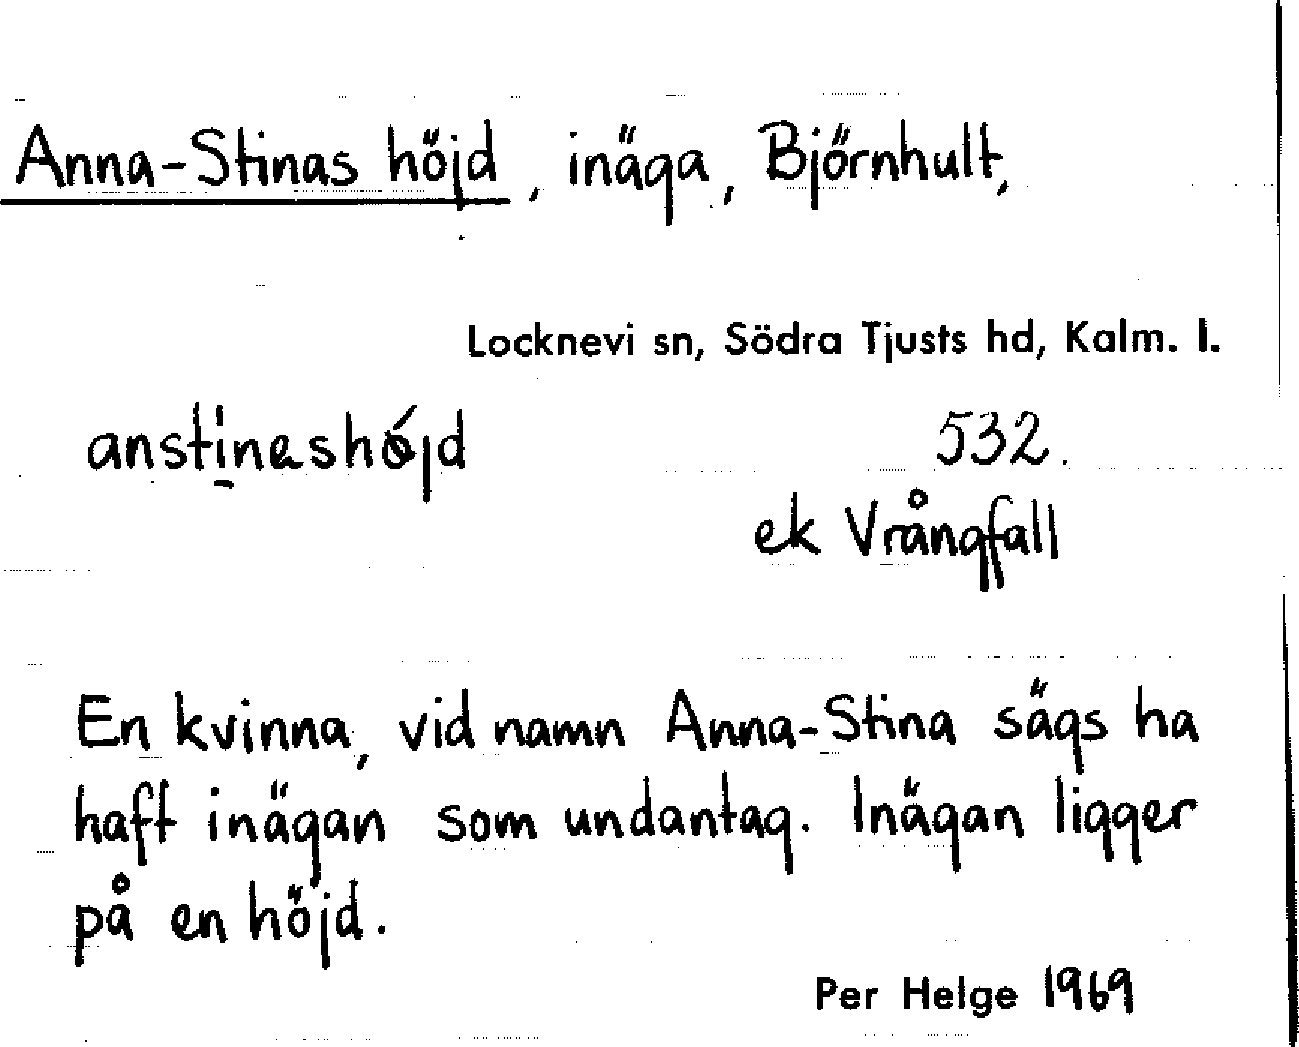 Anna-Stinas höjd, inäga, Björnhult,
Locknevi sn, Södra Tjusts hd, Kalm. l.
anstinɐshøjd
532.
ek Vrångfall
En kvinna, vid namn Anna-Stina sägs ha
haft inägan som undantag. Inägan ligger
på en höjd.
Per Helge 1969